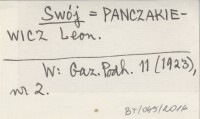 Swój = PANCZAKIE-
WICZ Leon.
W: Gaz. Podh. 11 (1923),
nr 2.
BT/045/2014